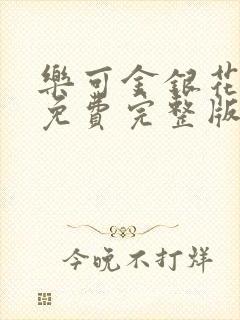 樂可金銀花
免費完整版
今晚不打烊